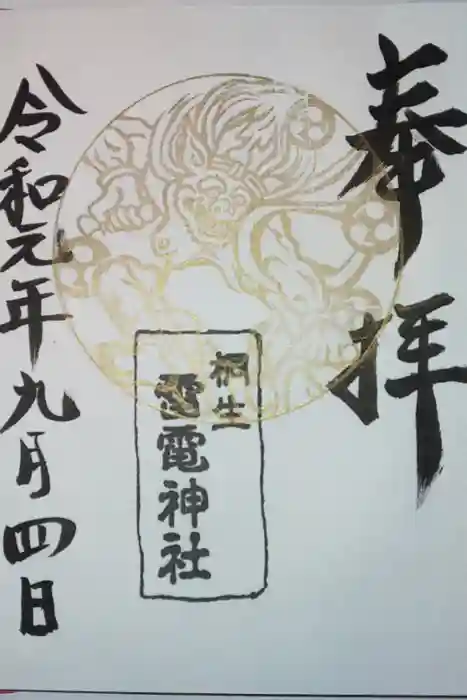 奉拝
桐生
雷電神社
令和元年九月四日